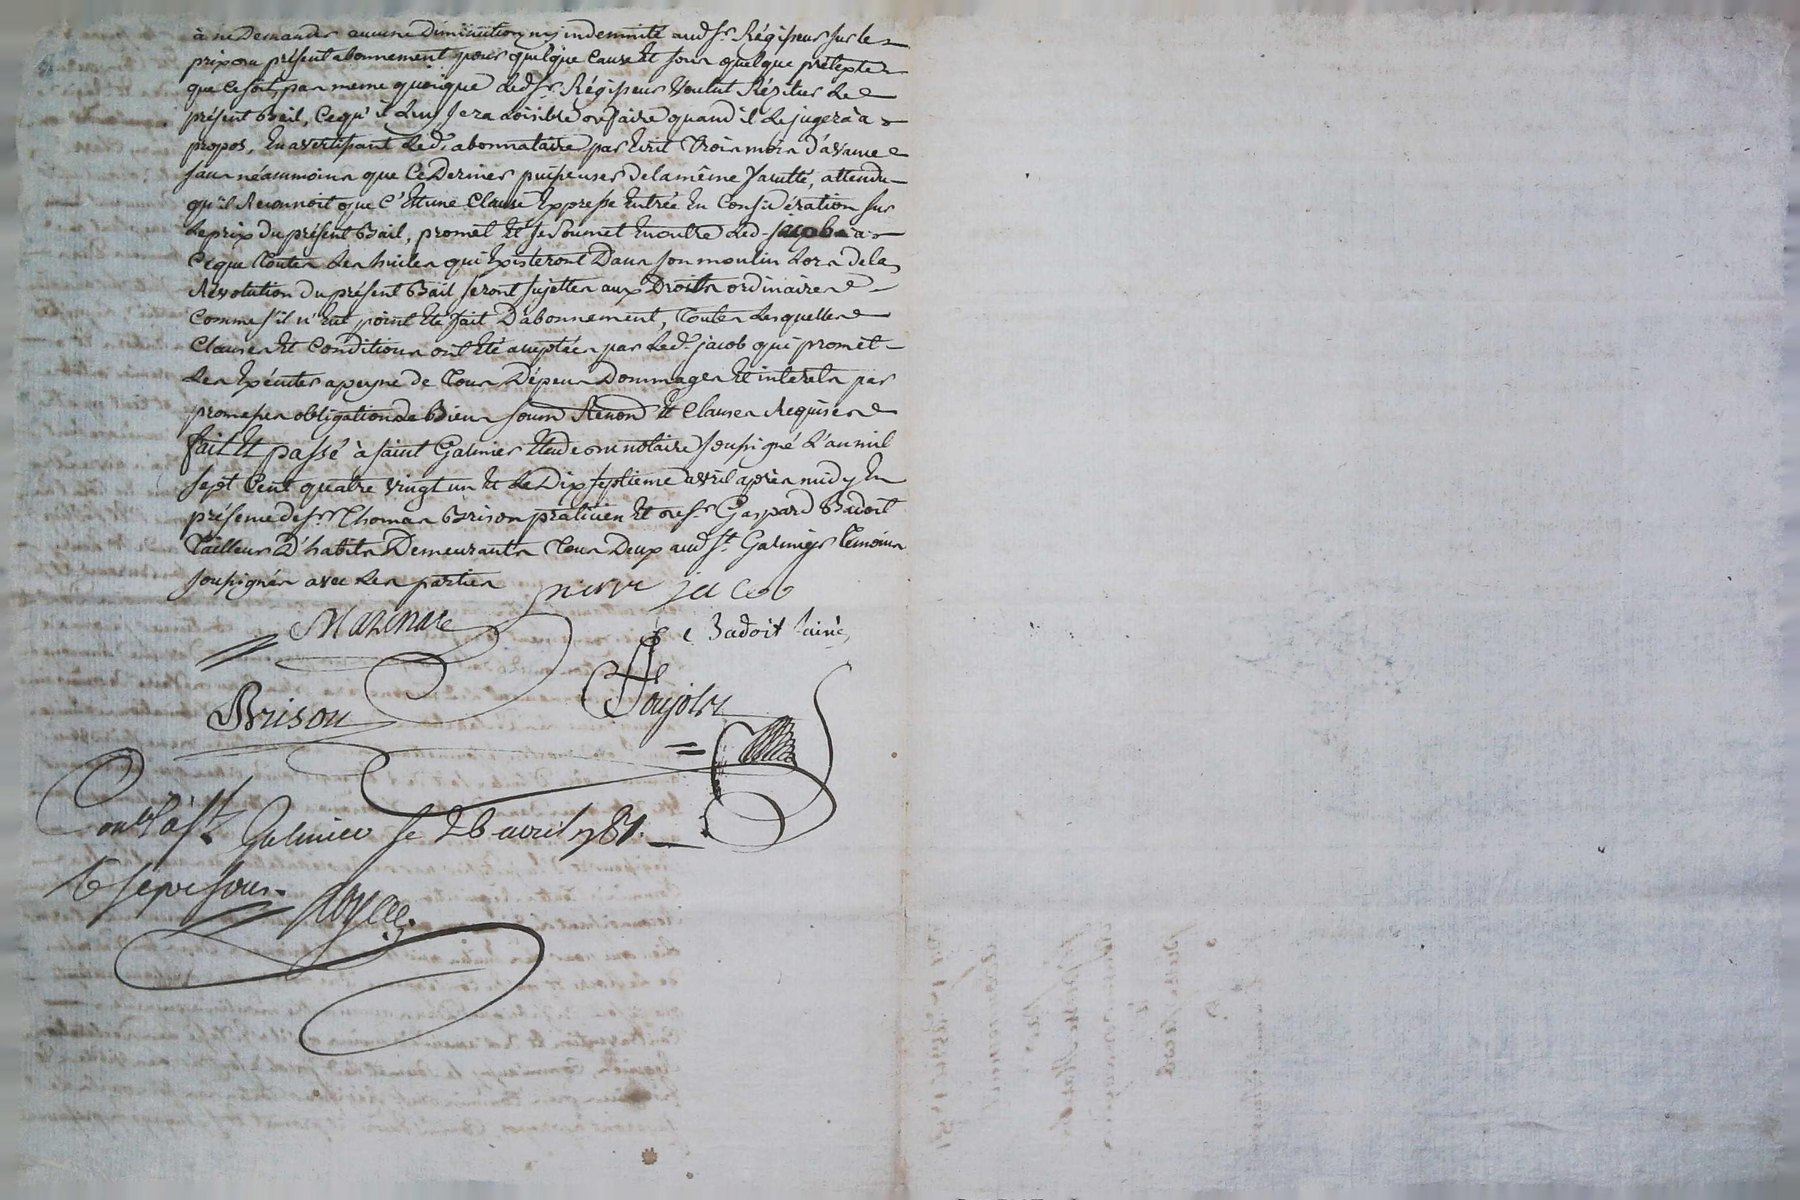 à ne Demander aucune Diminution, ny indemnité aud. Sr. Régisseur sur le
prix du présent abonnement pour quelque Cause Et sous quelque prétexte
que Ce soit, pas meme quoique Led. Sr. Régisseur Voulut Résilier Le
présent Bail, Ce qu'il Luy sera Loisible de faire quand il Le jugera à
propos, En avertissant Led. abonnataire par Ecrit Trois mois d'avance
sans néammoins que Ce Dernier puisse user de la même faculté, attendu
qu'il Reconnoit que C'Est une Clause Expresse Entrée En Considération sur
Le prix Du présent Bail, promet Et se Soumet En outre Led. Jacob à
Ceque Toutes Les huiles qui Existeront Dans son moulin Lors de la
Révolution Du présent Bail seront sujettes aux Droits ordinaires
Comme s'il n'Eut point Eté fait D'abonnement, Toutes Lesquelles
Clauses Et Conditions ont Eté acceptées par Led. jacob qui promet
Les Exécuter a peyne de Tous Dépens Dommages Et interets par
promesses obligation de Biens soum. Renon. Et Clauses Requises
fait Et passé à saint Galmier Etude du notaire soussigné L'an mil
sept Cent quatre vingt un Et Le Dix septieme avril après midy En
présence de Sr. Thomas Brison praticien Et de Sr. Gaspard Badoit
Tailleur D'habits Demeurants Tous Deux aud. St. Galmier Témoins
soussignés avec Les parties pierre jacob
Mazenat
Badoit l'ainé
Brison
Conlé à St. Galmier le 26 avril 1781.